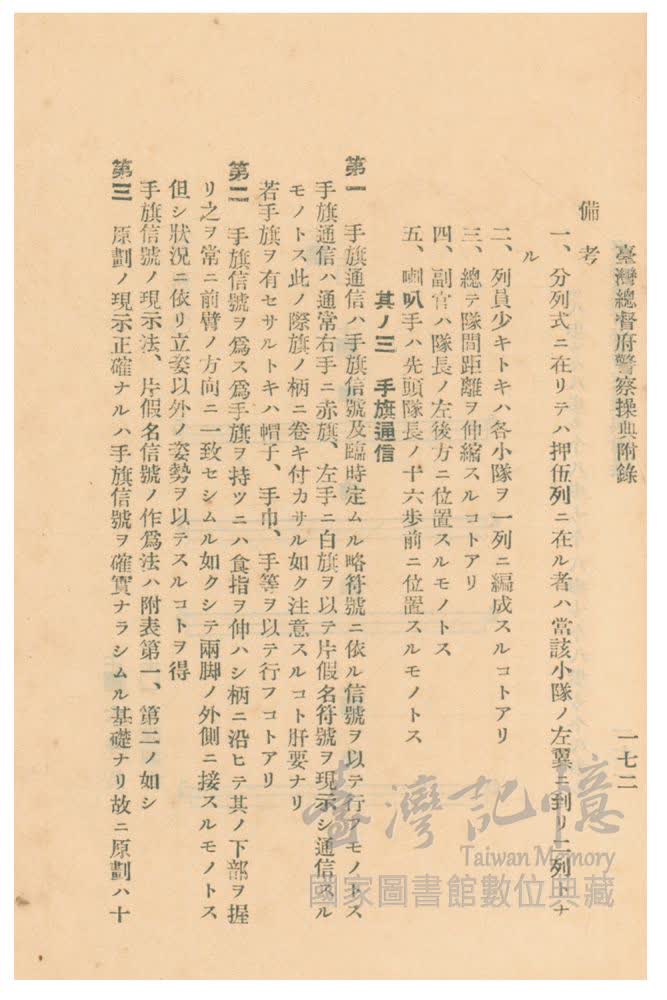 臺灣總督府警察操典附錄　一七二
備考
一、分列式ニ在リテハ押伍列ニ在ル者ハ當該小隊ノ左翼ニ到リ二列トナ
ル
二、列員少キトキハ各小隊ヲ一列ニ編成スルコトアリ
三、總テ隊間距離ヲ伸縮スルコトアリ
四、副官ハ隊長ノ左後方ニ位置スルモノトス
五、喇叭手ハ先頭隊長ノ十六步前ニ位置スルモノトス
其ノ三　手旗通信
第一　手旗通信ハ手旗信號及臨時定ムル略符號ニ依ル信號ヲ以テ行フモノトス
手旗通信ハ通常右手ニ赤旗、左手ニ白旗ヲ以テ片假名符號ヲ現示シ通信スル
モノトス此ノ際旗ノ柄ニ卷キ付カサル如ク注意スルコト肝要ナリ
若手旗ヲ有セサルトキハ帽子、手巾、手等ヲ以テ行フコトアリ
第二　手旗信號ヲ爲ス爲手旗ヲ持ツニハ食指ヲ伸ハシ柄ニ沿ヒテ其ノ下部ヲ握
リ之ヲ常ニ前臂ノ方向ニ一致セシムル如クシテ兩脚ノ外側ニ接スルモノトス
但シ狀況ニ依リ立姿以外ノ姿勢ヲ以テスルコトヲ得
手旗信號ノ現示法、片假名信號ノ作爲法ハ附表第一、第二ノ如シ
第三　原劃ノ現示正確ナルハ手旗信號ヲ確實ナラシムル基礎ナリ故ニ原劃ハ十
臺灣記憶
Taiwan Memory
國家圖書館數位典藏